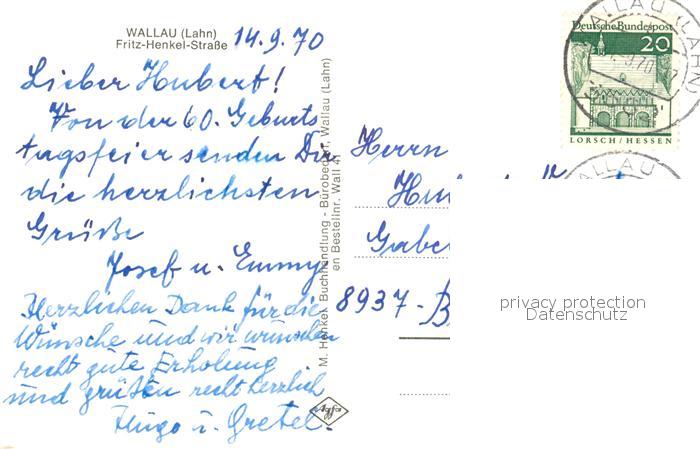 WALLAU (Lahn)
Fritz-Henkel-Straße
14.9.70
Lieber Hubert!
Von der 60. Geburts
tagsfeier senden Dir
die herzlichsten
Grüße
Josef u. Emmy
Herzlichen Dank für die
Wünsche und wir wünschen
recht gute Erholung
und grüßen recht herzlich
Hugo u. Gretel.
M. Henkel Buchhandlung - Bürobedarf, Wallau (Lahn)
en Bestellnr. Wall 41
Agfa
Herrn
Gabe
8937-B
Deutsche Bundespost
20
LORSCH/HESSEN
WALLAU (LAHN)
WALLAU
privacy protection
Datenschutz